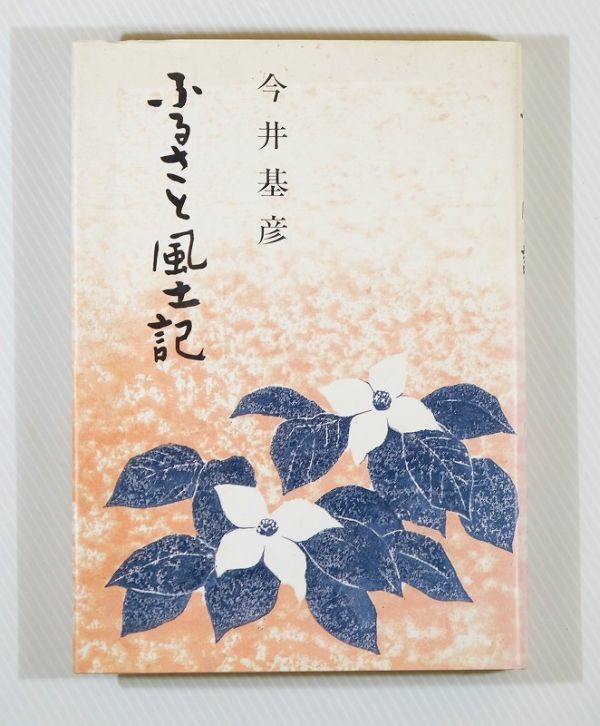 今井基彦
ふるさと風土記